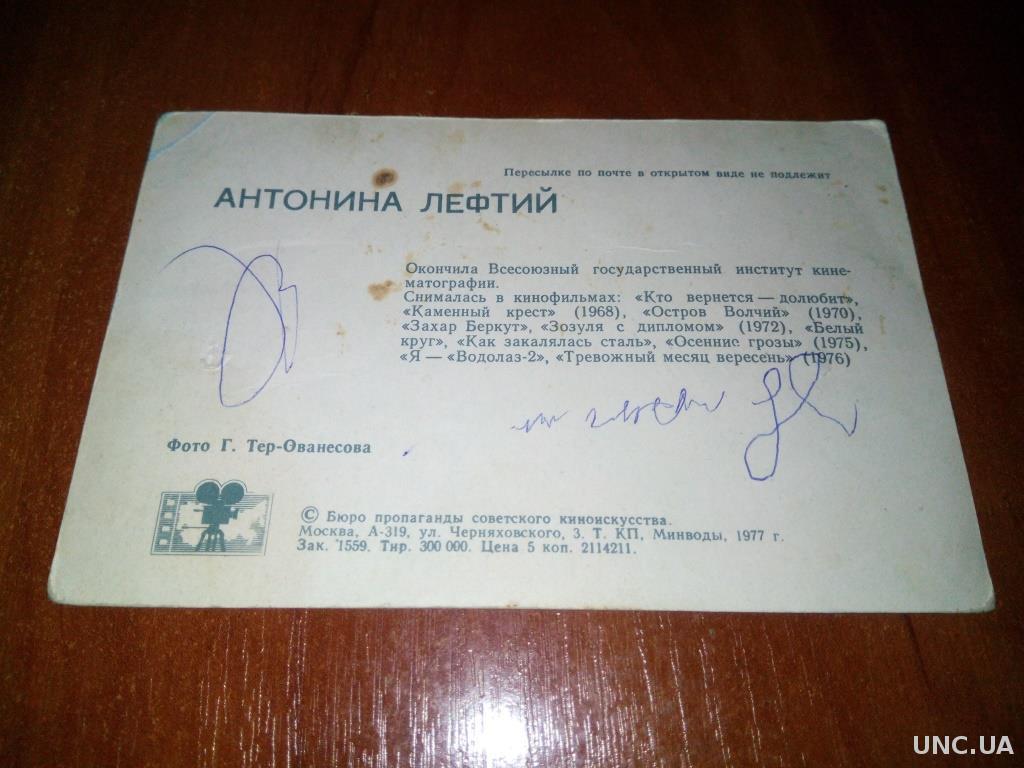 Пересылке по почте в открытом виде не подлежит
АНТОНИНА ЛЕФТИЙ
Окончила Всесоюзный государственный институт кине-
матографии.
Снималась в кинофильмах: «Кто вернется — долюбит»,
«Каменный крест» (1968), «Остров Волчий» (1970),
«Захар Беркут», «Зозуля с дипломом» (1972), «Белый
круг», «Как закалялась сталь», «Осенние грозы» (1975),
«Я — «Водолаз-2», «Тревожный месяц вересень» (1976)
Фото Г. Тер-Ованесова
© Бюро пропаганды советского киноискусства.
Москва, А-319, ул. Черняховского, 3. Т. КП, Минводы, 1977 г.
Зак. 1559. Тир. 300 000. Цена 5 коп. 2114211.
UNC.UA